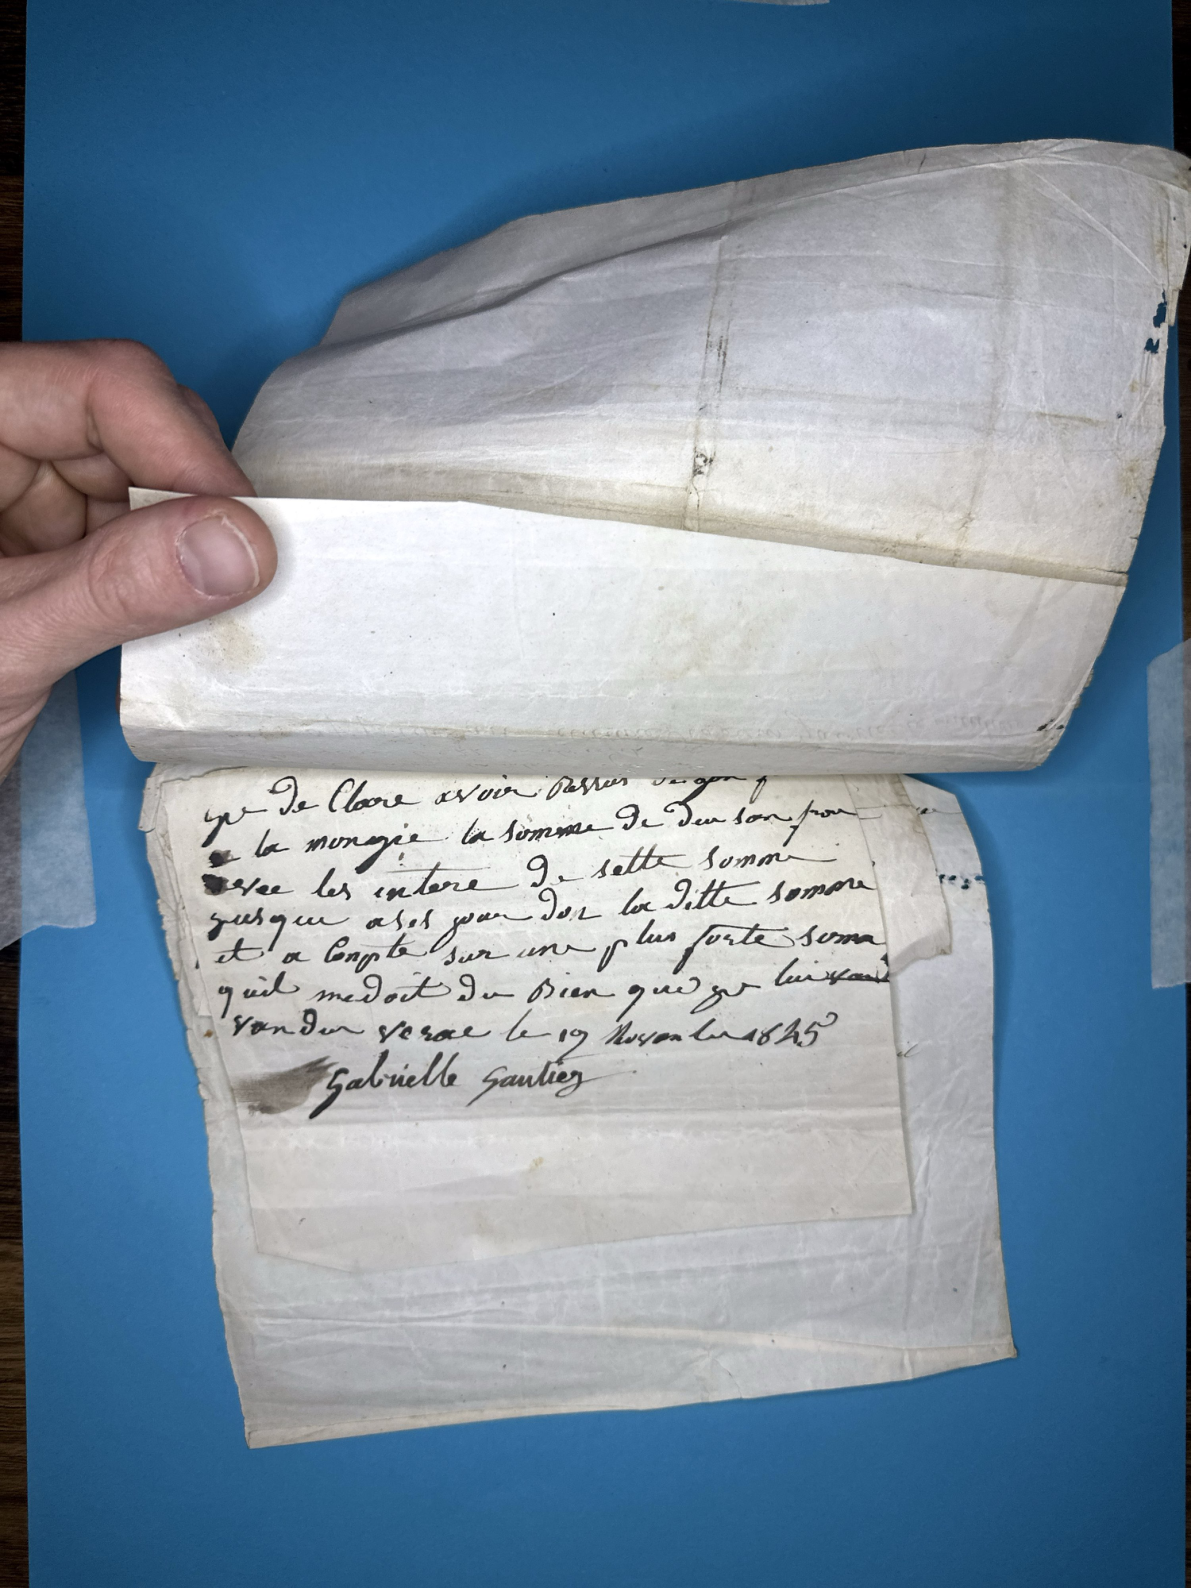 ge de Claare avoir Ressus de gan
de la mongie la somme de deu san fran
avec les intere de sette somme
jusque a ses jour don la ditte somme
et a Conpte sur une plus forte some
quil me doit du Bien que ge lui vand
vandu verac le 19 Novenbre 1845
Gabrielle Gautiez